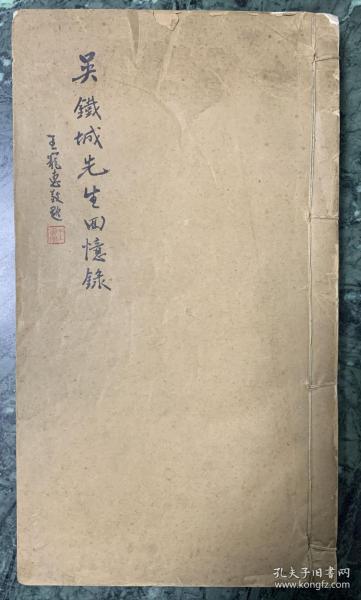 吳鐵城先生回憶錄
王寵惠敬題
孔夫子旧书网
www.kongfz.com